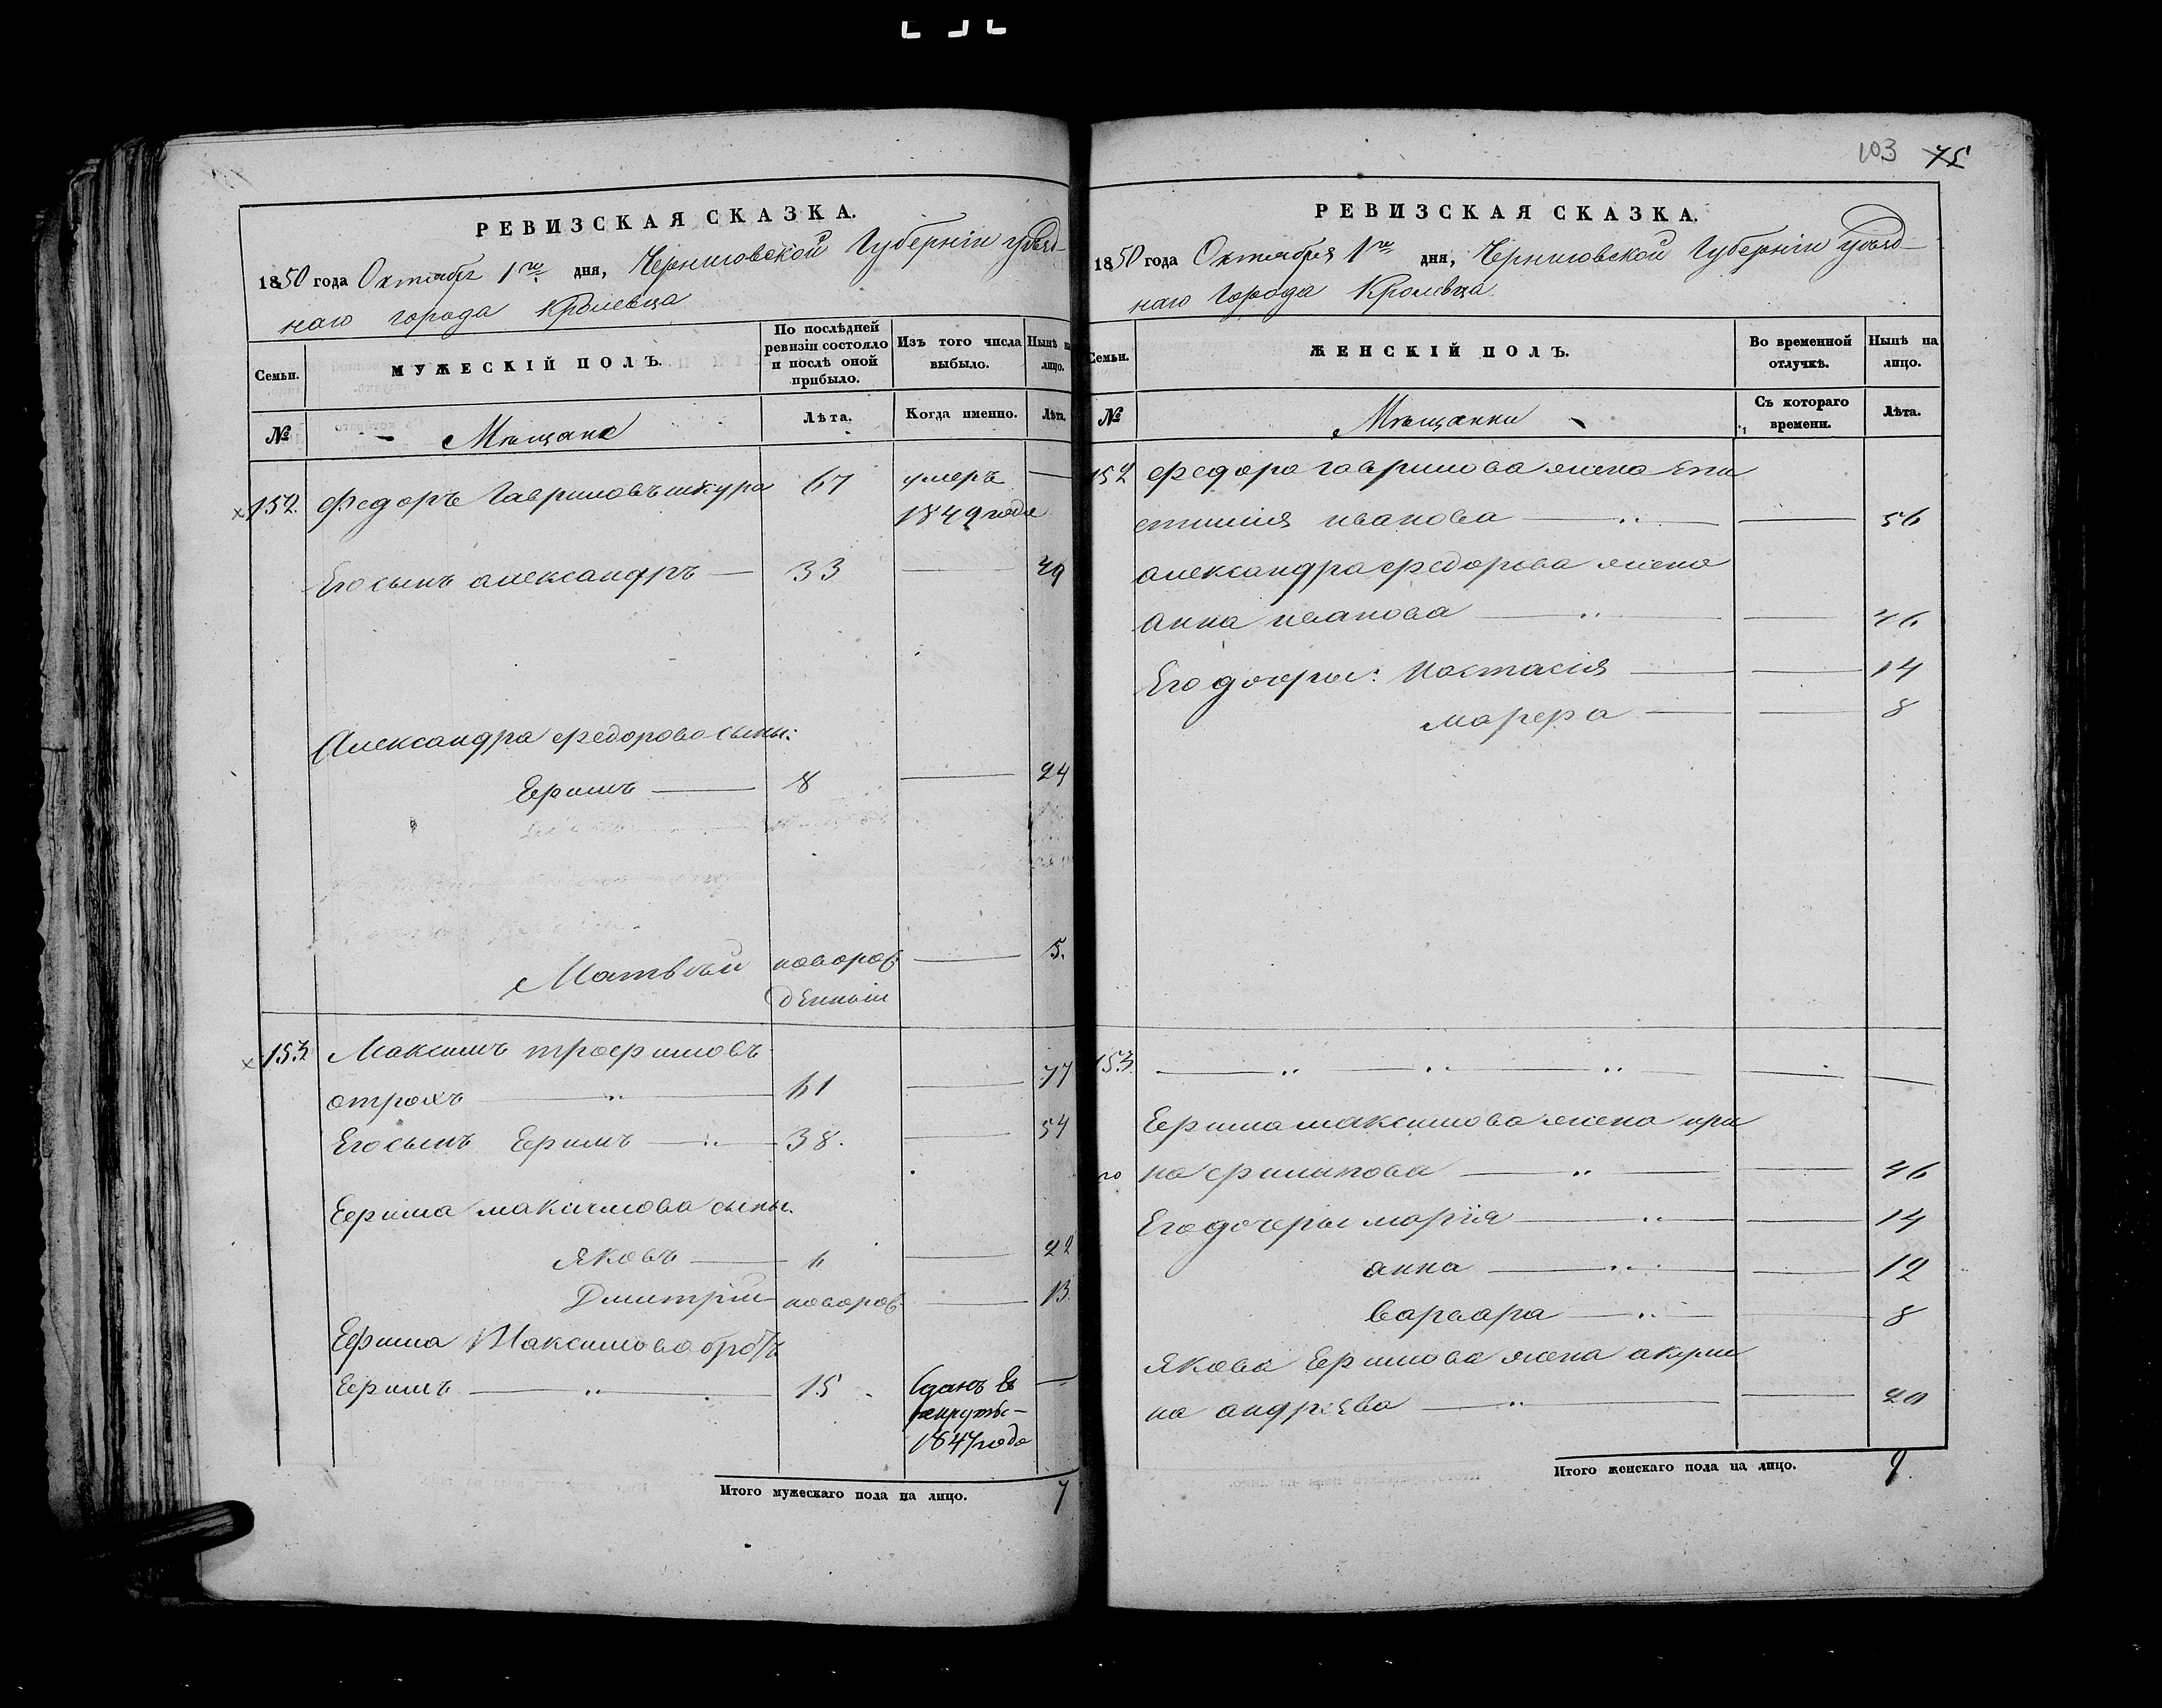 103 75
РЕВИЗСКАЯ СКАЗКА.
1850 года Октября 1го дня, Черниговской Губерніи уѣзд-
наго города Кролевца
Семьи.
МУЖЕСКІЙ ПОЛЪ.
По послѣдней ревизіи состояло и послѣ оной прибыло.
Изъ того числа выбыло.
Нынѣ на лицо.
№
Мѣщане
Лѣта.
Когда именно.
Лѣта.
152. Федоръ Гавриловъ шкура 67 умеръ —
1849 года
Его сынъ александръ — 33 — 49
Александра федорова сыны:
Ефимъ — 8 — 24
Матвѣй новорож — 5.
денный
153 Максимъ трофимовъ
отрохъ — 61 — 77
Его сынъ Ефимъ — 38. — 54
Ефима максимова сыны.
Яковъ — 6 — 22
Дмитрій новорож. — 13.
Ефима Максимова братъ
Ефимъ — 15 Сданъ въ —
рекруты-
1847 года
Итого мужескаго пола на лицо. 7
РЕВИЗСКАЯ СКАЗКА.
1850 года Октября 1го дня, Черниговской Губерніи уѣзд-
наго Города Кролевца
Семьи.
ЖЕНСКІЙ ПОЛЪ.
Во временной отлучкѣ.
Нынѣ на лицо.
№
Мѣщанки
Съ котораго времени.
Лѣта.
152 Федора гаврилова жена Епи
стимия иванова — — 56
александра федорова жена
анна иванова — — 46
Его дочери: Настасія — — 14
марфа — — 8
153. — — —
Ефима максимова жена ири
на филипова — — 46
Его дочери марія — — 14
анна — — 12
варвара — — 8
Якова Ефимова жена акули
на андрѣева — — 20
Итого женскаго пола на лицо. 9.